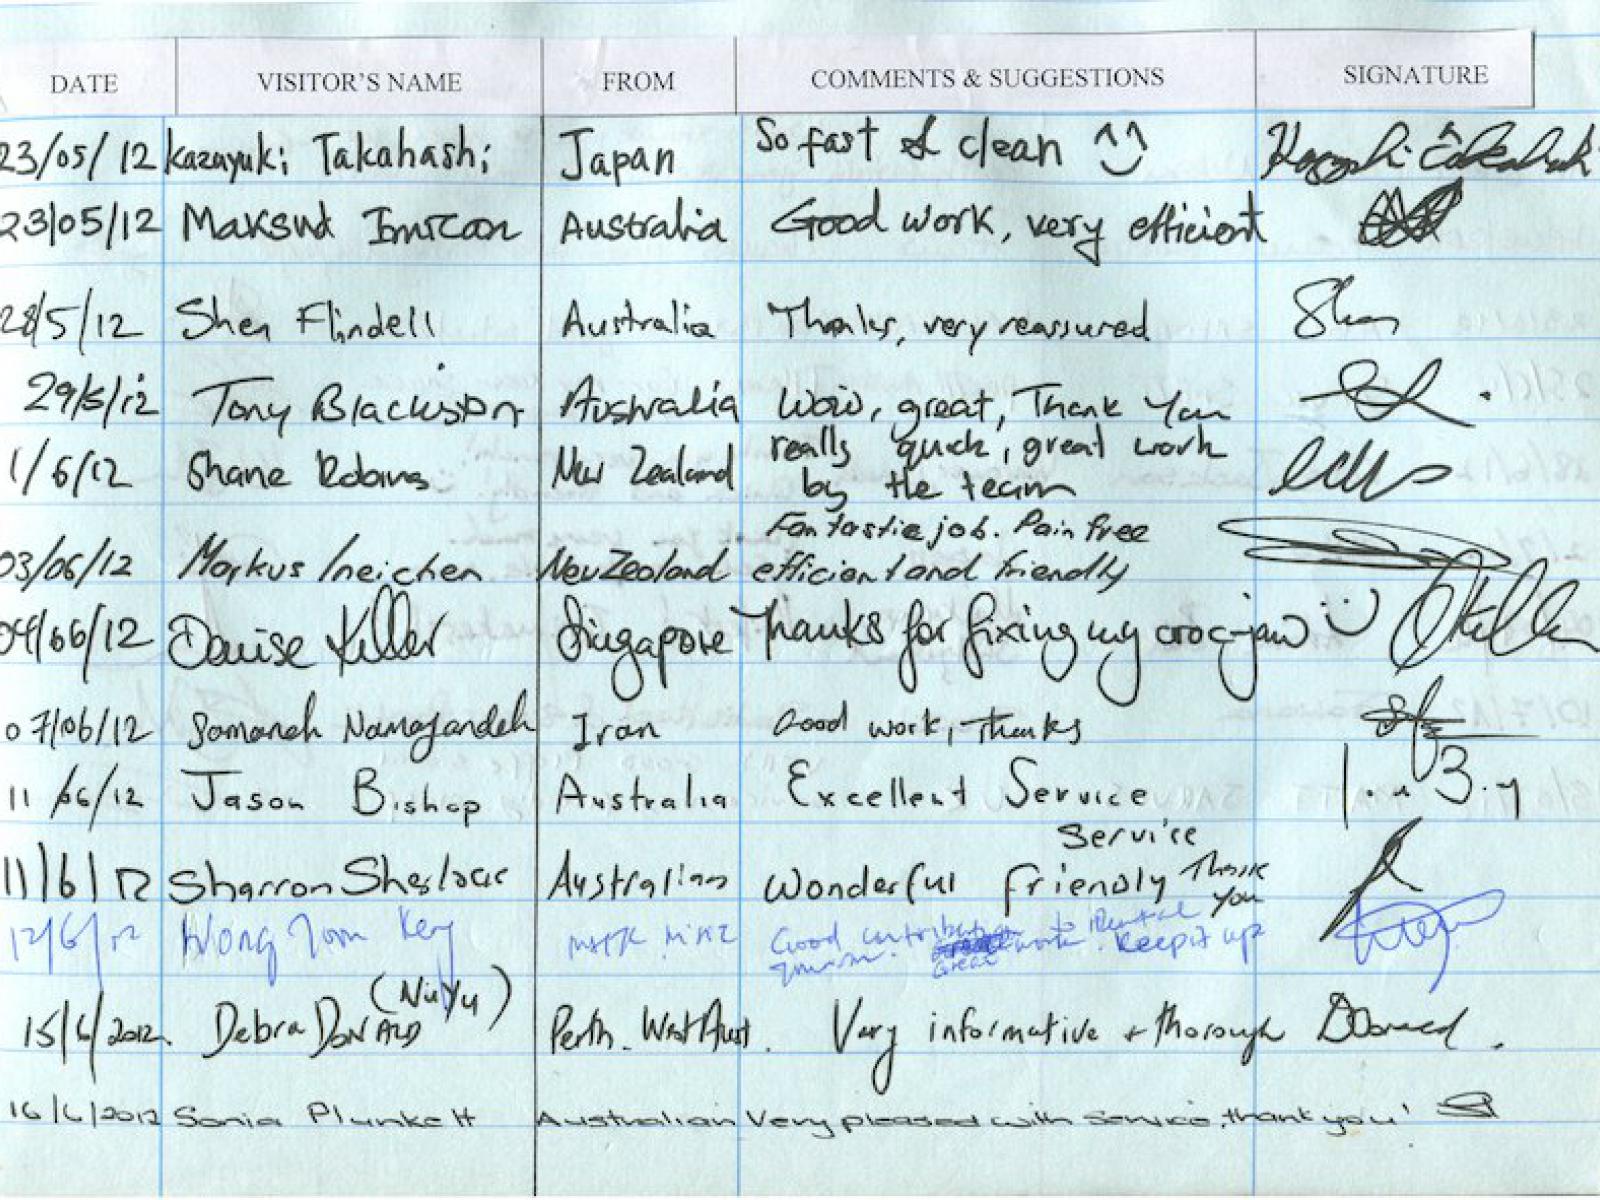 DATE VISITOR'S NAME FROM COMMENTS & SUGGESTIONS SIGNATURE
23/05/12 Kazuyuki Takahashi Japan So fast & clean ^^
23/05/12 Maksut Australia Good work, very efficient
28/5/12 Shen Flindell Australia Thanks, very reassured
29/5/12 Tony Australia Wow, great, Thank You
1/6/12 Shane Robins New Zealand really quick, great work
by the team
Fantastic job. Pain free
03/06/12 Markus Ineichen New Zealand efficient and friendly
04/06/12 Denise Keller Singapore Thanks for fixing my croc-jaw :)
07/06/12 Samaneh Namayandeh Iran Good work, thanks
11/06/12 Jason Bishop Australia Excellent Service
Service
11/6/12 Sharron Sherlock Australian Wonderful Friendly Thank
You
12/6/12 Wong Good to Dental
tourism. Great work. Keep it up
(NuYu)
15/6/2012 Debra Donald Perth. West Aust. Very informative + thorough DDonald.
16/6/2012 Sonia Plunkett Australian Very pleased with service, thank you!